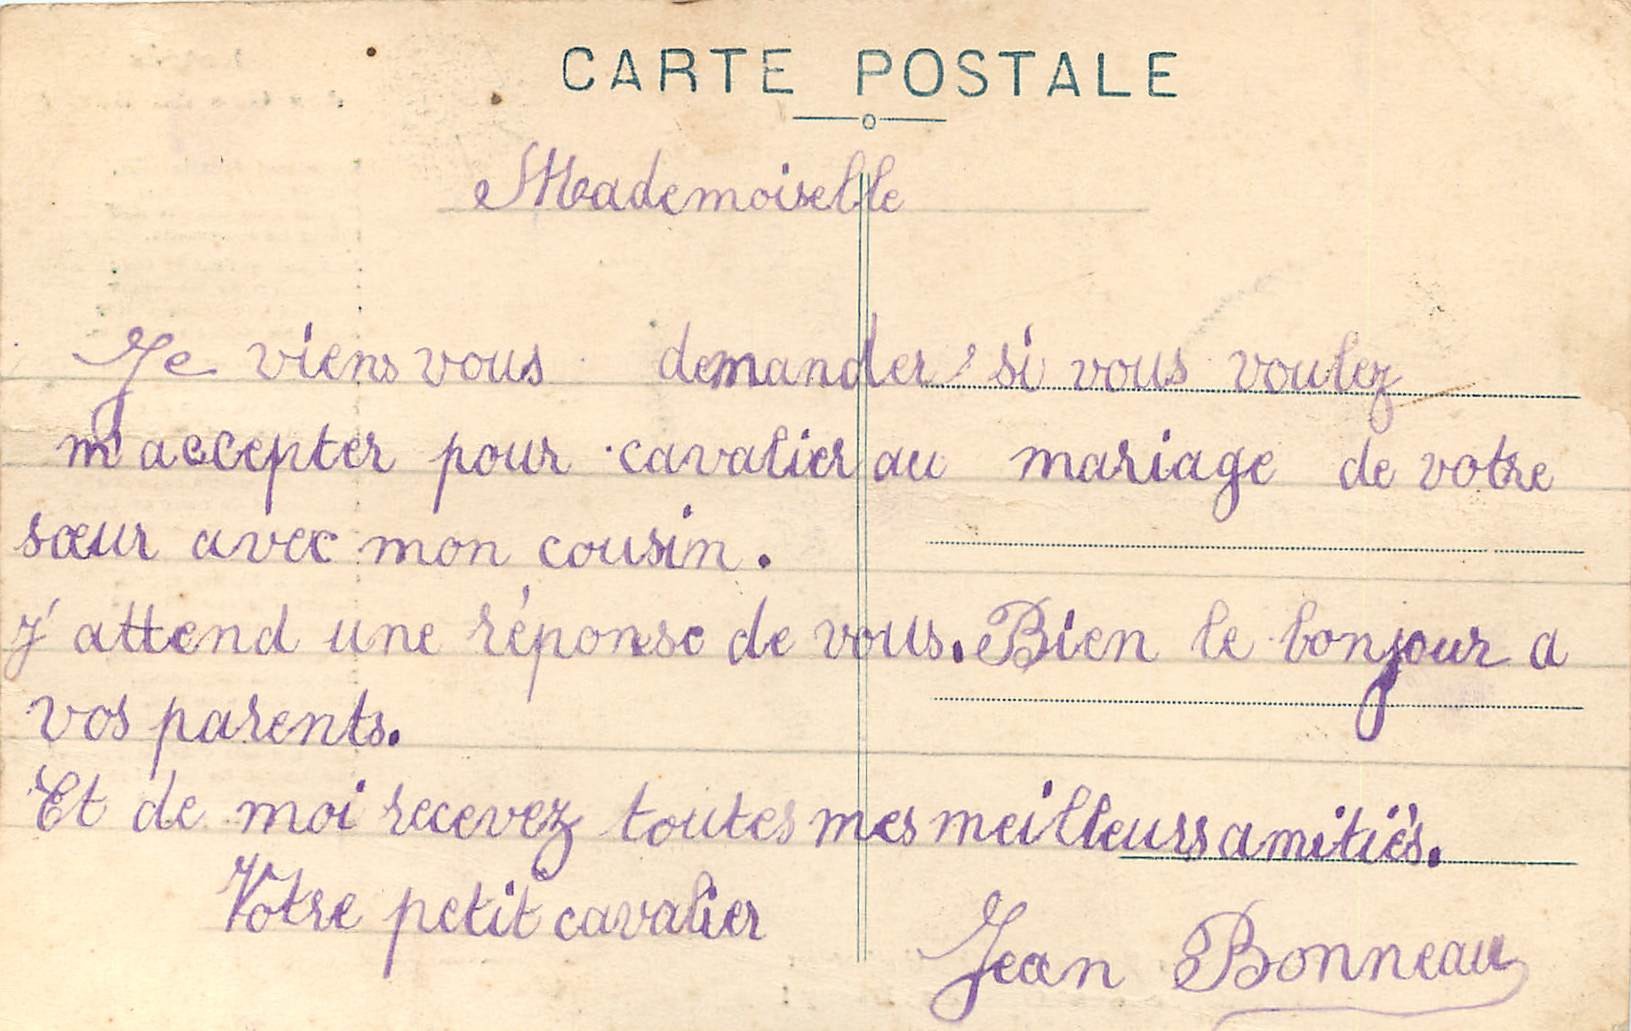 CARTE POSTALE
Mademoiselle
Je viens vous demander si vous voulez
m'accepter pour cavalier au mariage de votre
sœur avec mon cousin.
j'attend une réponse de vous. Bien le bonjour a
vos parents.
Et de moi recevez toutes mes meilleurs amitiés.
Votre petit cavalier
Jean Bonneau